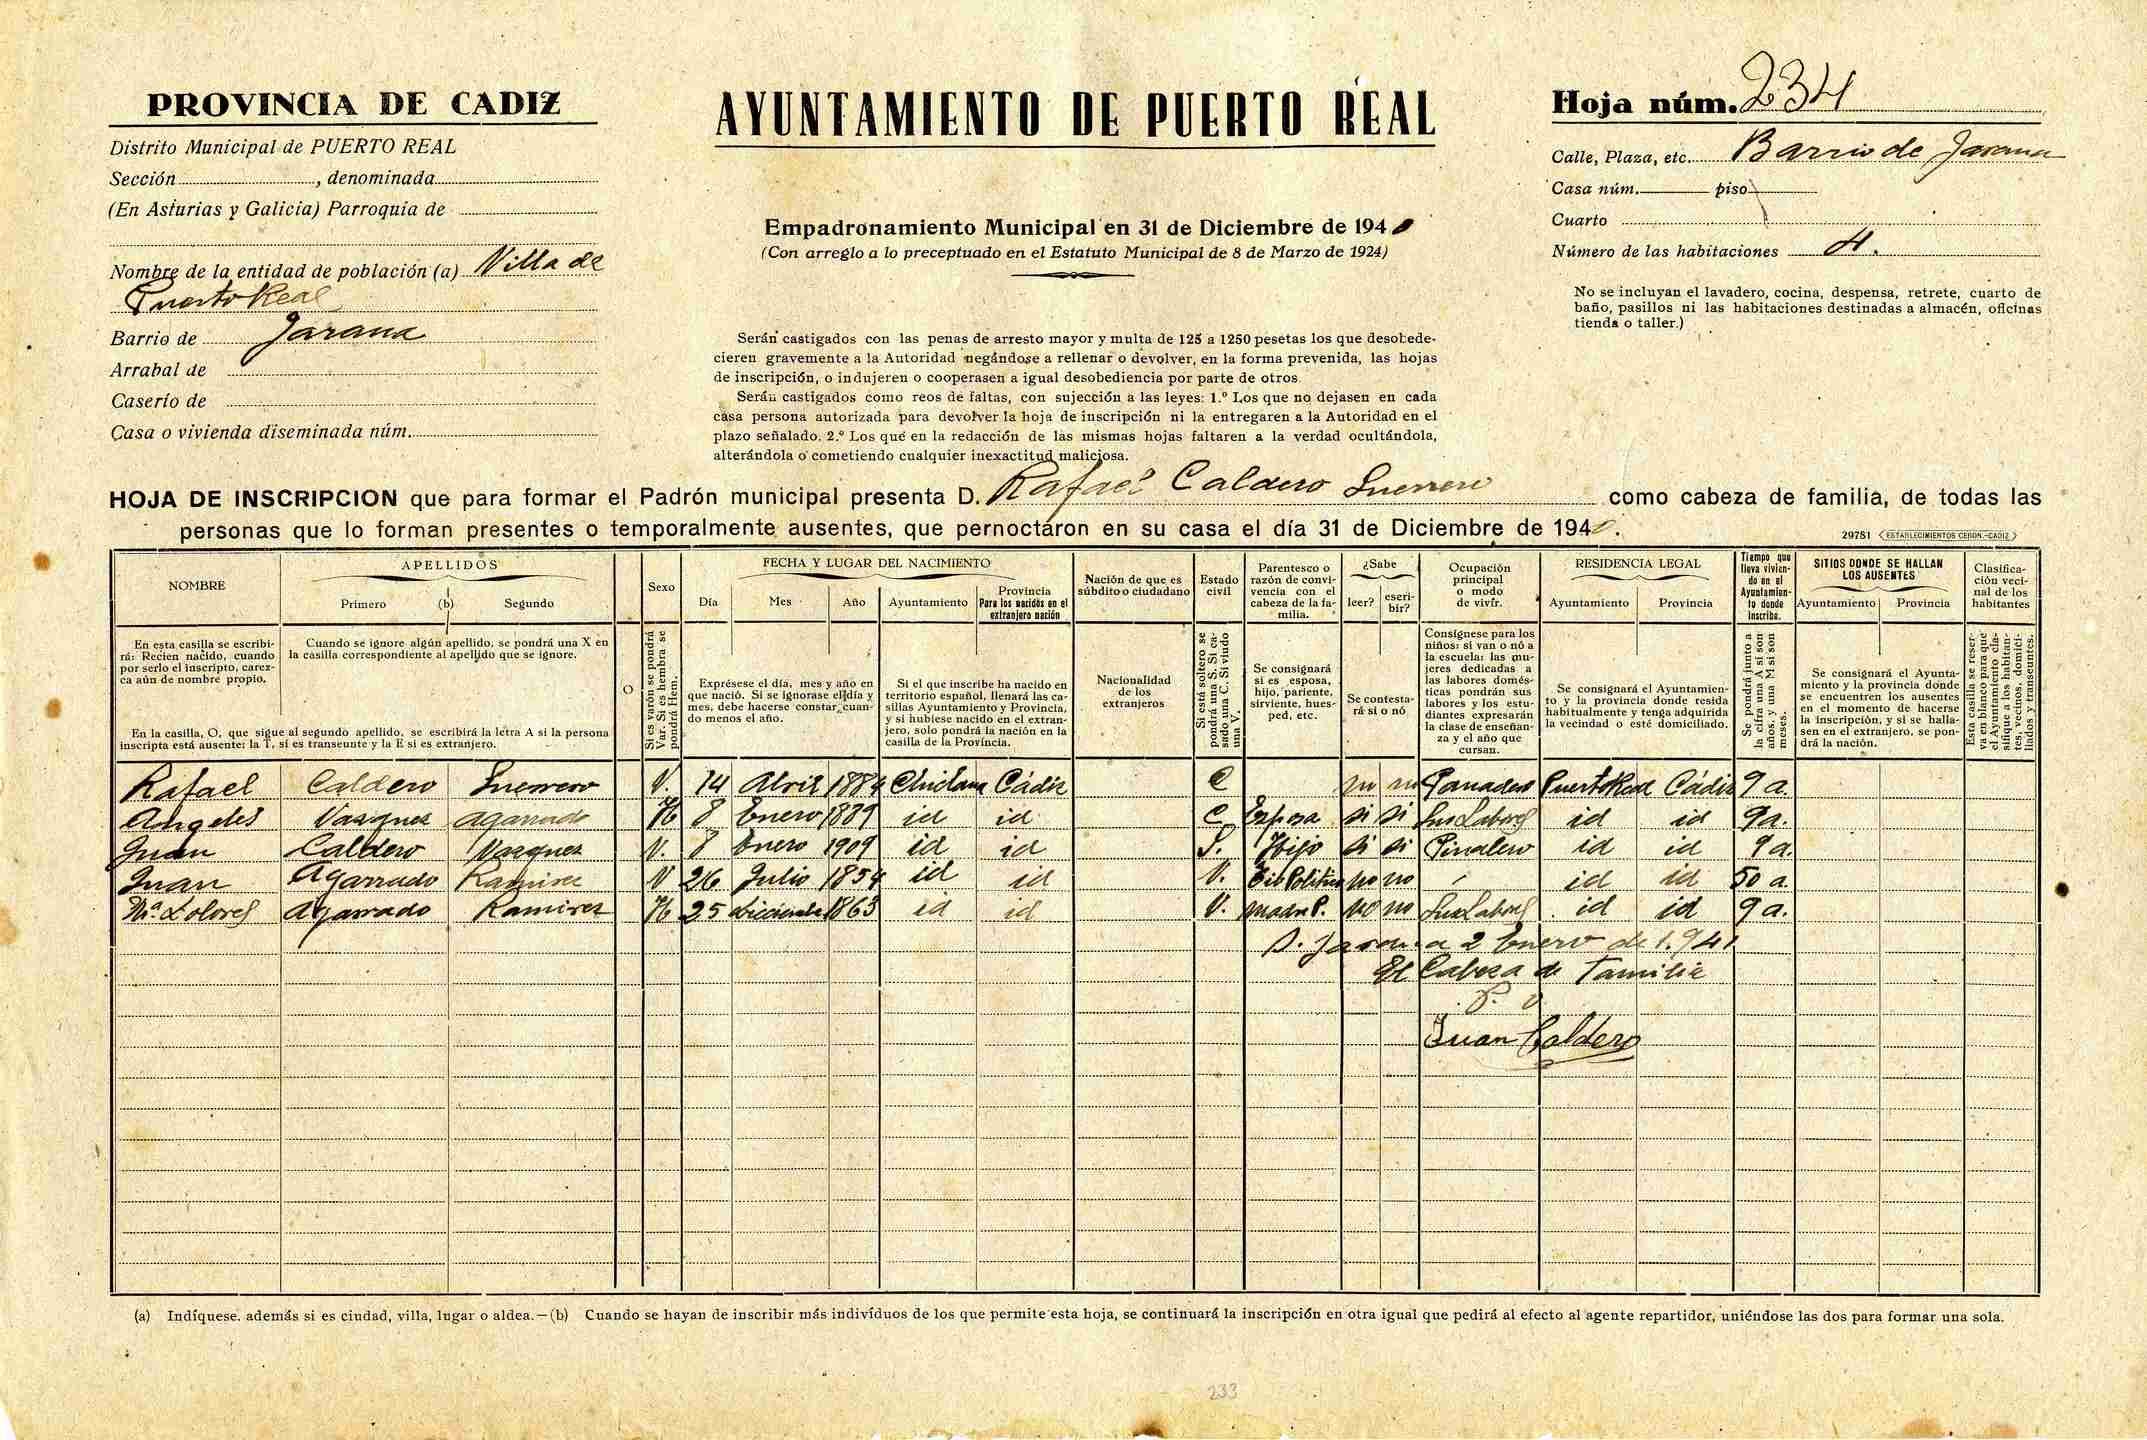 PROVINCIA DE CADIZ
Distrito Municipal de PUERTO REAL
Sección , denominada
(En Asturias y Galicia) Parroquia de
Nombre de la entidad de población (a) Villa de
Puerto Real
Barrio de Jarana
Arrabal de
Caserío de
Casa o vivienda diseminada núm.
AYUNTAMIENTO DE PUERTO REAL
Empadronamiento Municipal en 31 de Diciembre de 1940
(Con arreglo a lo preceptuado en el Estatuto Municipal de 8 de Marzo de 1924)
Serán castigados con las penas de arresto mayor y multa de 125 a 1250 pesetas los que desobede-
cieren gravemente a la Autoridad negándose a rellenar o devolver, en la forma prevenida, las hojas
de inscripción, o indujeren o cooperasen a igual desobediencia por parte de otros.
Serán castigados como reos de faltas, con sujección a las leyes: 1.º Los que no dejasen en cada
casa persona autorizada para devolver la hoja de inscripción ni la entregaren a la Autoridad en el
plazo señalado. 2.º Los que en la redacción de las mismas hojas faltaren a la verdad ocultándola,
alterándola o cometiendo cualquier inexactitud maliciosa.
Hoja núm. 234
Calle, Plaza, etc. Barrio de Jarana
Casa núm. piso
Cuarto
Número de las habitaciones 4.
No se incluyan el lavadero, cocina, despensa, retrete, cuarto de
baño, pasillos ni las habitaciones destinadas a almacén, oficinas
tienda o taller.)
HOJA DE INSCRIPCION que para formar el Padrón municipal presenta D. Rafael Caldero Guerrero como cabeza de familia, de todas las
personas que lo forman presentes o temporalmente ausentes, que pernoctáron en su casa el día 31 de Diciembre de 1940.
29781 ESTABLECIMIENTOS CERON.-CADIZ
NOMBRE
APELLIDOS
Primero (b) Segundo
Sexo
FECHA Y LUGAR DEL NACIMIENTO
Día Mes Año Ayuntamiento
Provincia
Para los nacidos en el
extranjero nación
Nación de que es
súbdito o ciudadano
Estado
civil
Parentesco o
razón de convi-
vencia con el
cabeza de la fa-
milia.
¿Sabe
leer? escri-
bir?
Ocupación
principal
o modo
de vivir.
RESIDENCIA LEGAL
Ayuntamiento Provincia
Tiempo que
lleva vivien-
do en el
Ayuntamien-
to donde
inscribe.
SITIOS DONDE SE HALLAN
LOS AUSENTES
Ayuntamiento Provincia
Clasifica-
ción veci-
nal de los
habitantes
En esta casilla se escribi-
rá: Recien nacido, cuando
por serlo el inscripto, carez-
ca aún de nombre propio.
Cuando se ignore algún apellido, se pondrá una X en
la casilla correspondiente al apellido que se ignore.
En la casilla, O, que sigue al segundo apellido, se escribirá la letra A si la persona
inscripta está ausente: la T, si es transeunte y la E si es extranjero.
O
Si es varón se pondrá
Var. Si es hembra se
pondrá Hem.
Exprésese el día, mes y año en
que nació. Si se ignorase el día y
mes, debe hacerse constar cuan-
do menos el año.
Si el que inscribe ha nacido en
territorio español, llenará las ca-
sillas Ayuntamiento y Provincia,
y si hubiese nacido en el extran-
jero, solo pondrá la nación en la
casilla de la Provincia.
Nacionalidad
de los
extranjeros
Si está soltero se
pondrá una S. Si ca-
sado una C. Si viudo
una V.
Se consignará
si es esposa,
hijo, pariente,
sirviente, hues-
ped, etc.
Se contesta-
rá si o nó
Consígnese para los
niños: si van o nó a
la escuela: las mu-
jeres dedicadas a
las labores domés-
ticas pondrán sus
labores y los estu-
diantes expresarán
la clase de enseñan-
za y el año que
cursan.
Se consignará el Ayuntamien-
to y la provincia donde resida
habitualmente y tenga adquirida
la vecindad o esté domiciliado.
Se pondrá junto a
la cifra una A si son
años, y una M si son
meses.
Se consignará el Ayunta-
miento y la provincia donde
se encuentren los ausentes
en el momento de hacerse
la inscripción, y si se halla-
sen en el extranjero, se pon-
drá la nación.
Esta casilla se reser-
va en blanco para que
el Ayuntamiento cla-
sifique a los habitan-
tes, vecinos, domici-
liados y transeuntes.
Rafael Caldero Guerrero V. 14 Abril 1884 Chiclana Cádiz C no no Panadero Puerto Real Cádiz 9 a.
Angeles Vazquez Agarrado H 8 Enero 1889 id id C Esposa si si Sus Labores id id 9 a.
Juan Caldero Vazquez V. 8 Enero 1909 id id S. Hijo si si Pinalero id id 9 a.
Juan Agarrado Ramirez V 26 Julio 1854 id id V. Tio Politico no no id id 50 a.
Mª Dolores Agarrado Ramirez H 25 diciembre 1863 id id V. madre P. no no Sus Labores id id 9 a.
Jarana 2 Enero de 1.941
El Cabeza de Familia
P.
Juan Caldero
(a) Indíquese. además si es ciudad, villa, lugar o aldea.—(b) Cuando se hayan de inscribir más individuos de los que permite esta hoja, se continuará la inscripción en otra igual que pedirá al efecto al agente repartidor, uniéndose las dos para formar una sola.
233